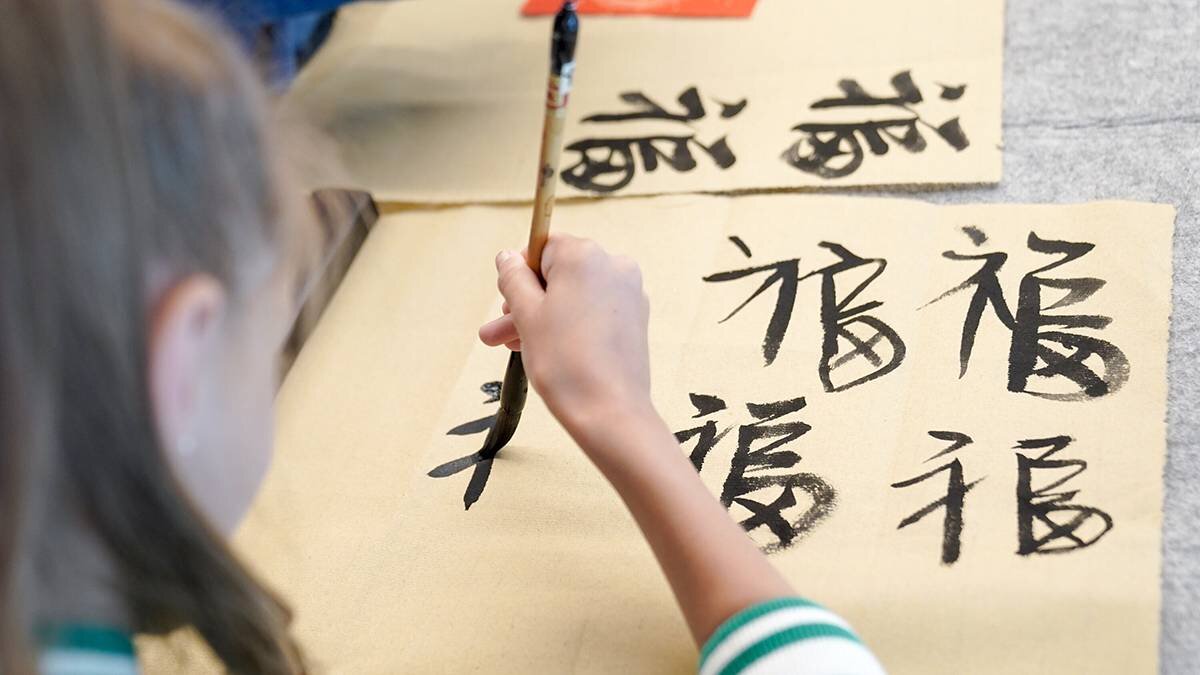 福福
福福
福福